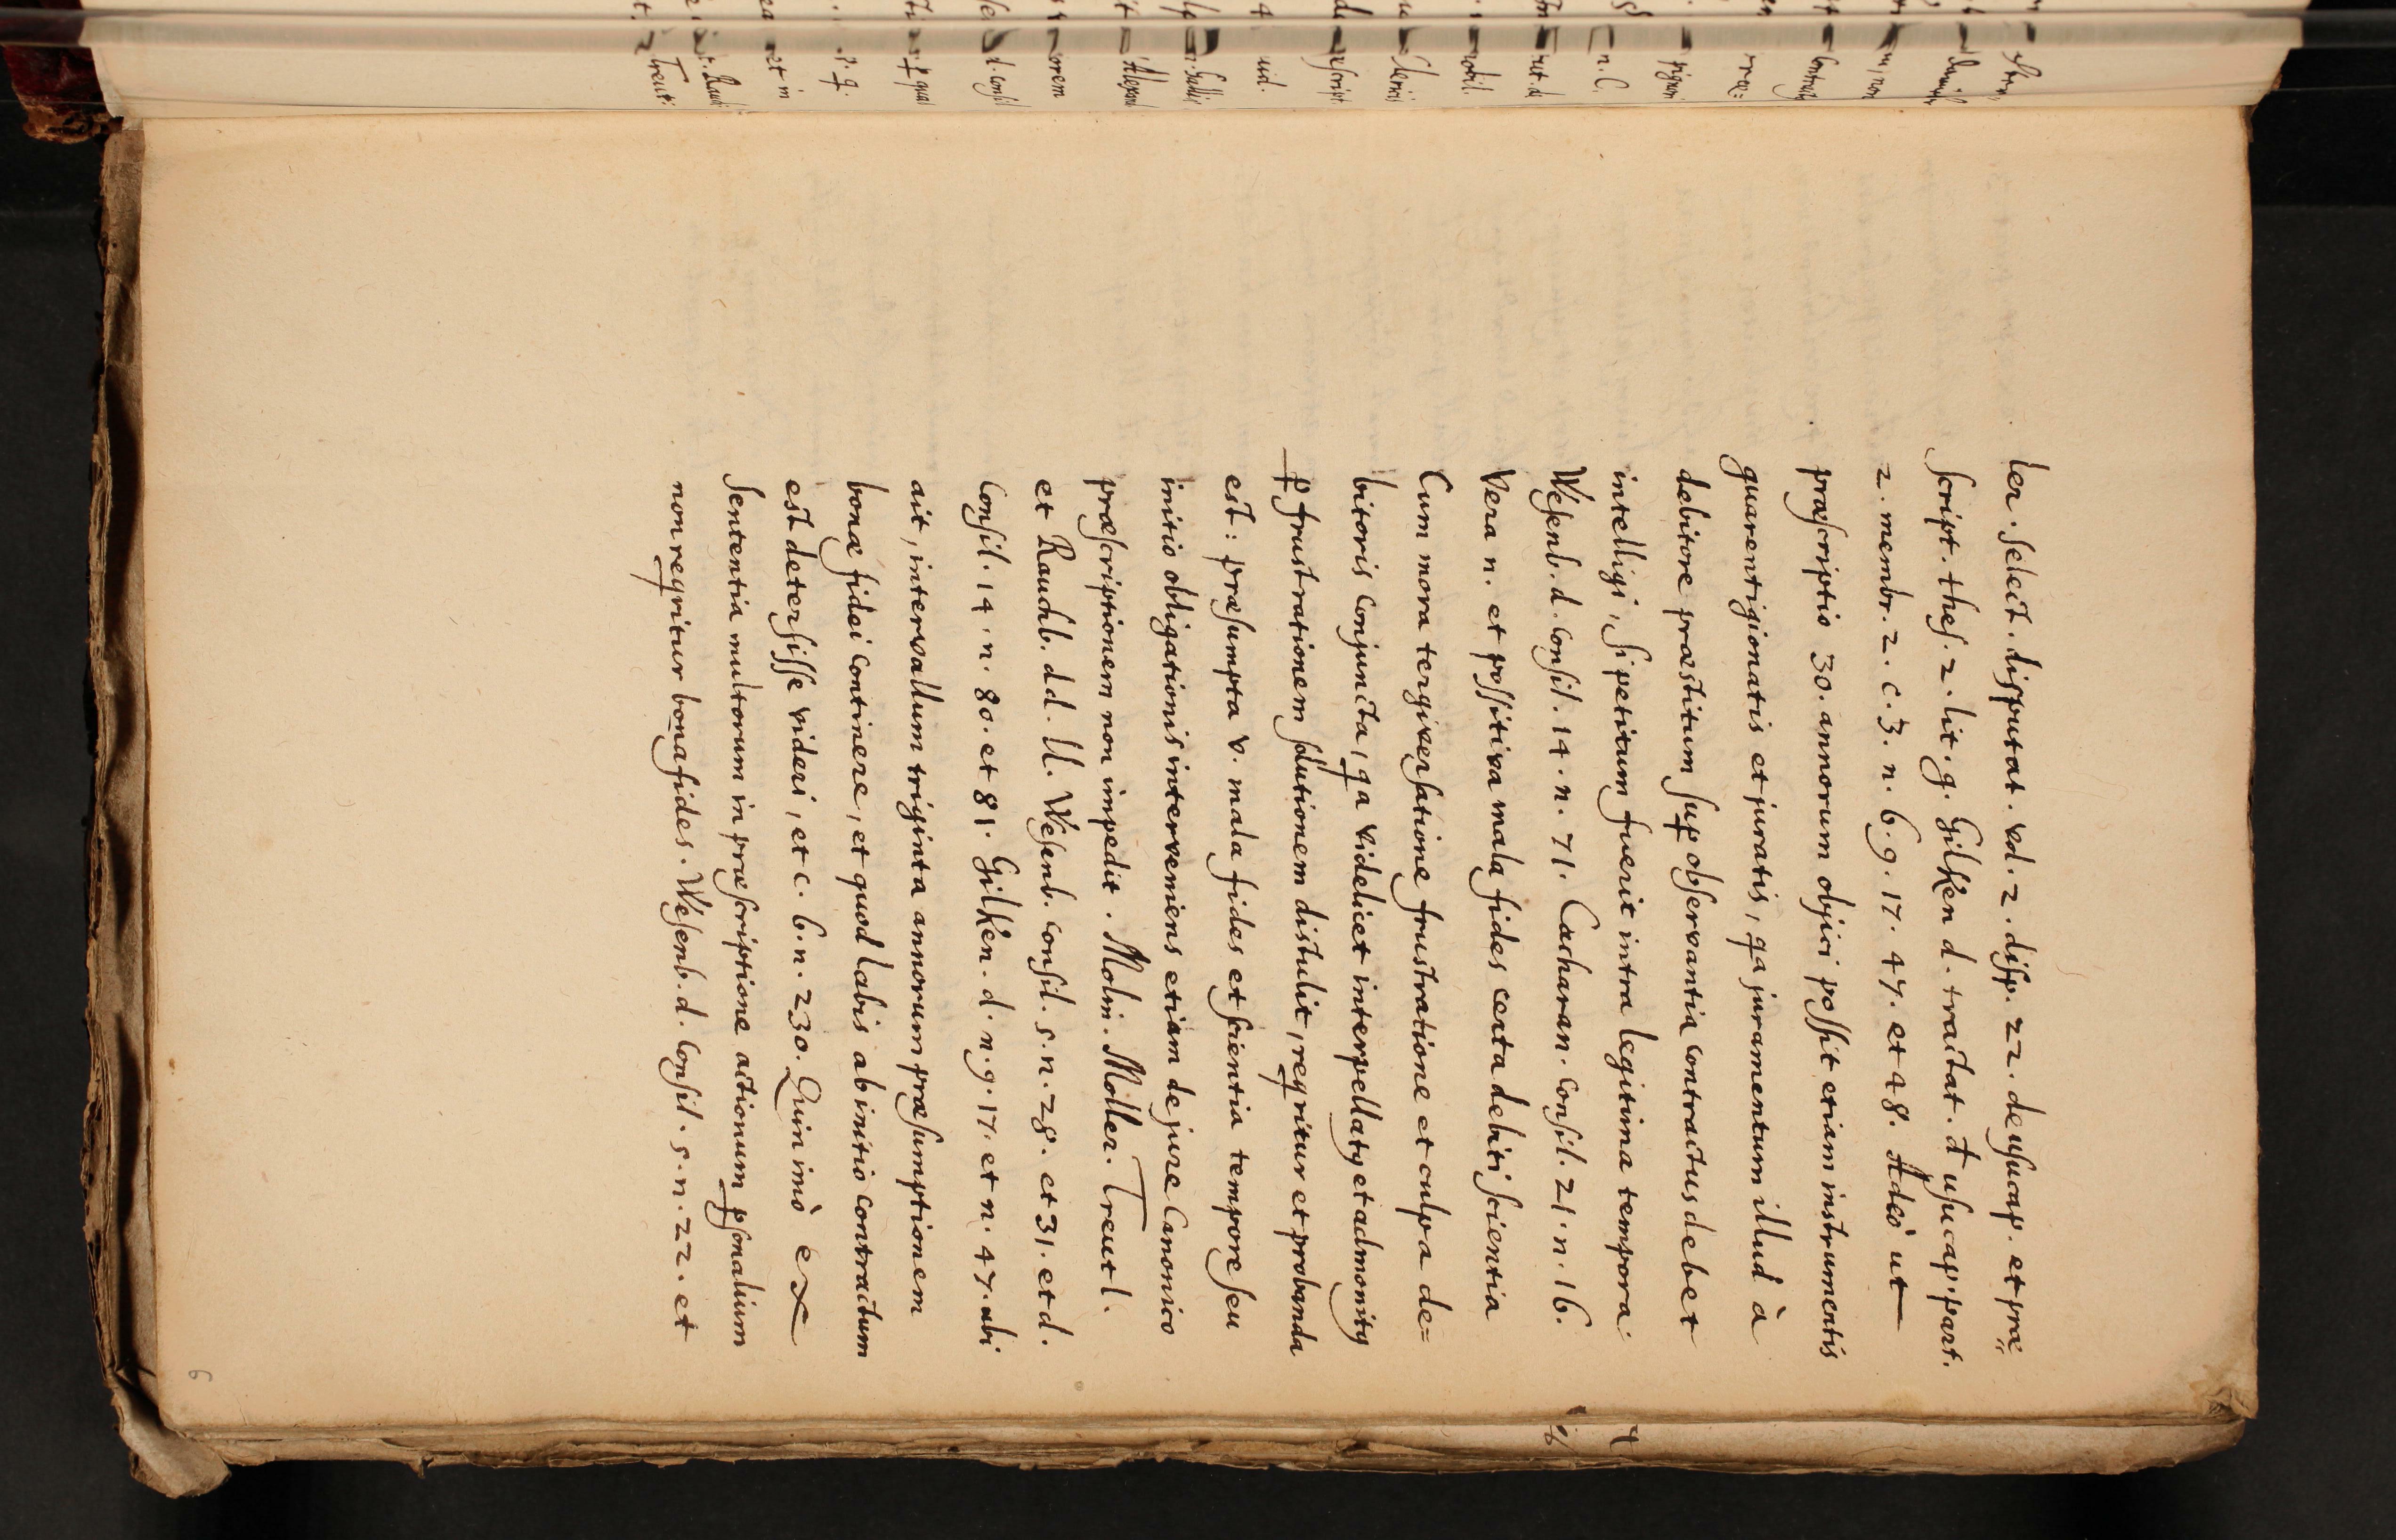 ler. select. disputat. vol. 2. disp. 22. de usucap. et præ=
script. thes. 2. lit. g. Gilken d. tractat. d usucap. part.
2. membr. 2. c. 3. n. 6. 9. 17. 47. et 48. Adeò ut
præscriptio 30. annorum objici possit etiam instrumentis
guarentigionatis et juratis, qa juramentum illud à
debitore præstitum sup observantia contractus debet
intelligi, si petitum fuerit intra legitima tempora.
Wesenb. d. consil. 14. n. 71. Cacharan. consil. 21. n. 16.
Vera n. et positiva mala fides certa debiti scientia
Cum mora tergiversatione frustratione et culpa de=
bitoris conjuncta, qa videlicet interpellatꝰ et admonitꝰ
p frustrationem solutionem distulit, reqritur et probanda
est: præsumpta v. mala fides et scientia tempore seu
initio obligationis interveniens etiam de jure Canonico
præscriptionem non impedit. Molin. Moller. Treutl.
et Rauchb. dd. ll. Wesenb. consil. 5. n. 28. et 31. et d.
consil. 14. n. 80. et 81. Gilken. d. n. 9. 17. et n. 47. ubi
ait, intervallum triginta annorum præsumptionem
bonæ fidei continere, et quod labis ab initio contractum
est detersisse videri, et c. 6. n. 230. Quin imò ex
sententia multorum in præscriptione actionum psonalium
non reqritur bona fides. Wesenb. d. consil. 5. n. 22. et